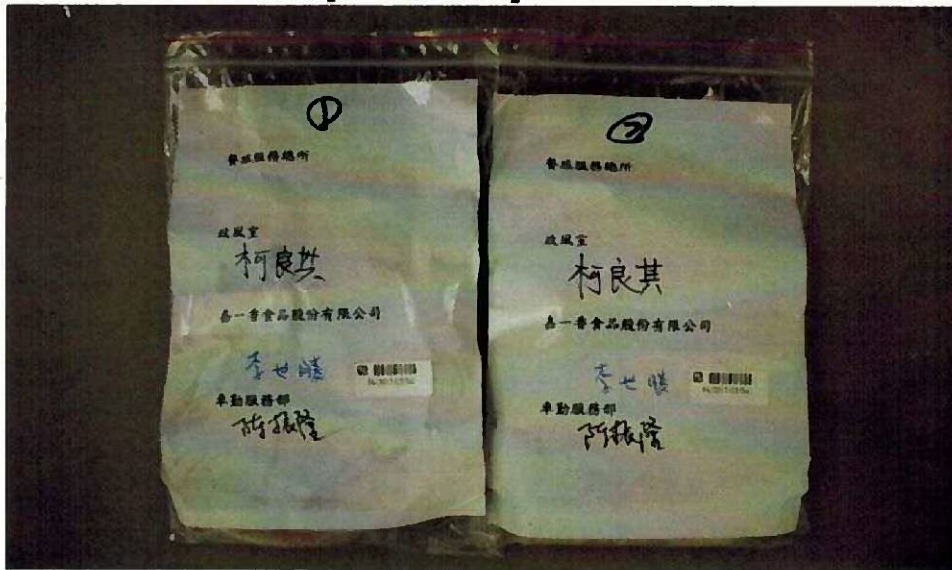 ①
餐旅服務總所
政風室
柯良其
嘉一香食品股份有限公司
李世勝
車勤服務部
陳振隆
②
餐旅服務總所
政風室
柯良其
嘉一香食品股份有限公司
李世勝
車勤服務部
陳振隆